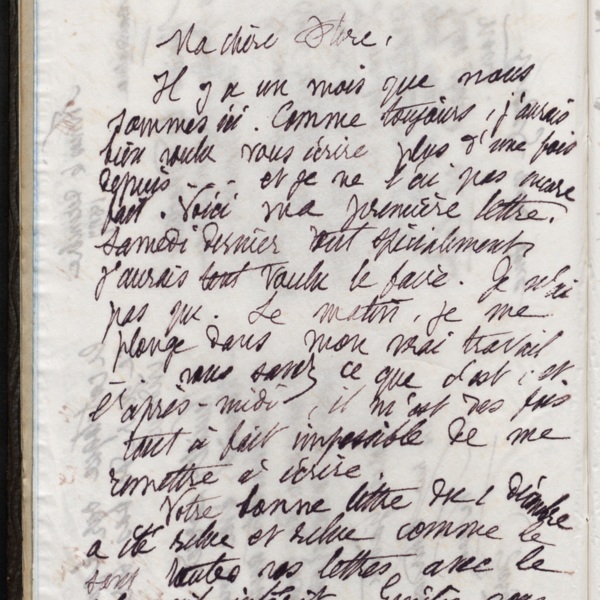 Ma chère
Il y a un mois que nous
sommes ici. Comme toujours, j'aurais
bien voulu vous écrire plus d'une fois
depuis - - - et je ne l'ai pas encore
fait. Voici ma première lettre.
Samedi dernier tout spécialement
j'aurais tout voulu le faire. Je n'ai
pas pu. Le matin, je me
plonge dans mon vrai travail
vous savez ce que c'est, et
l'après-midi, il m'est des fois
tout à fait impossible de me
remettre à écrire.
Votre bonne lettre du 1 décembre
a été relue et relue comme le
sont toutes vos lettres avec le